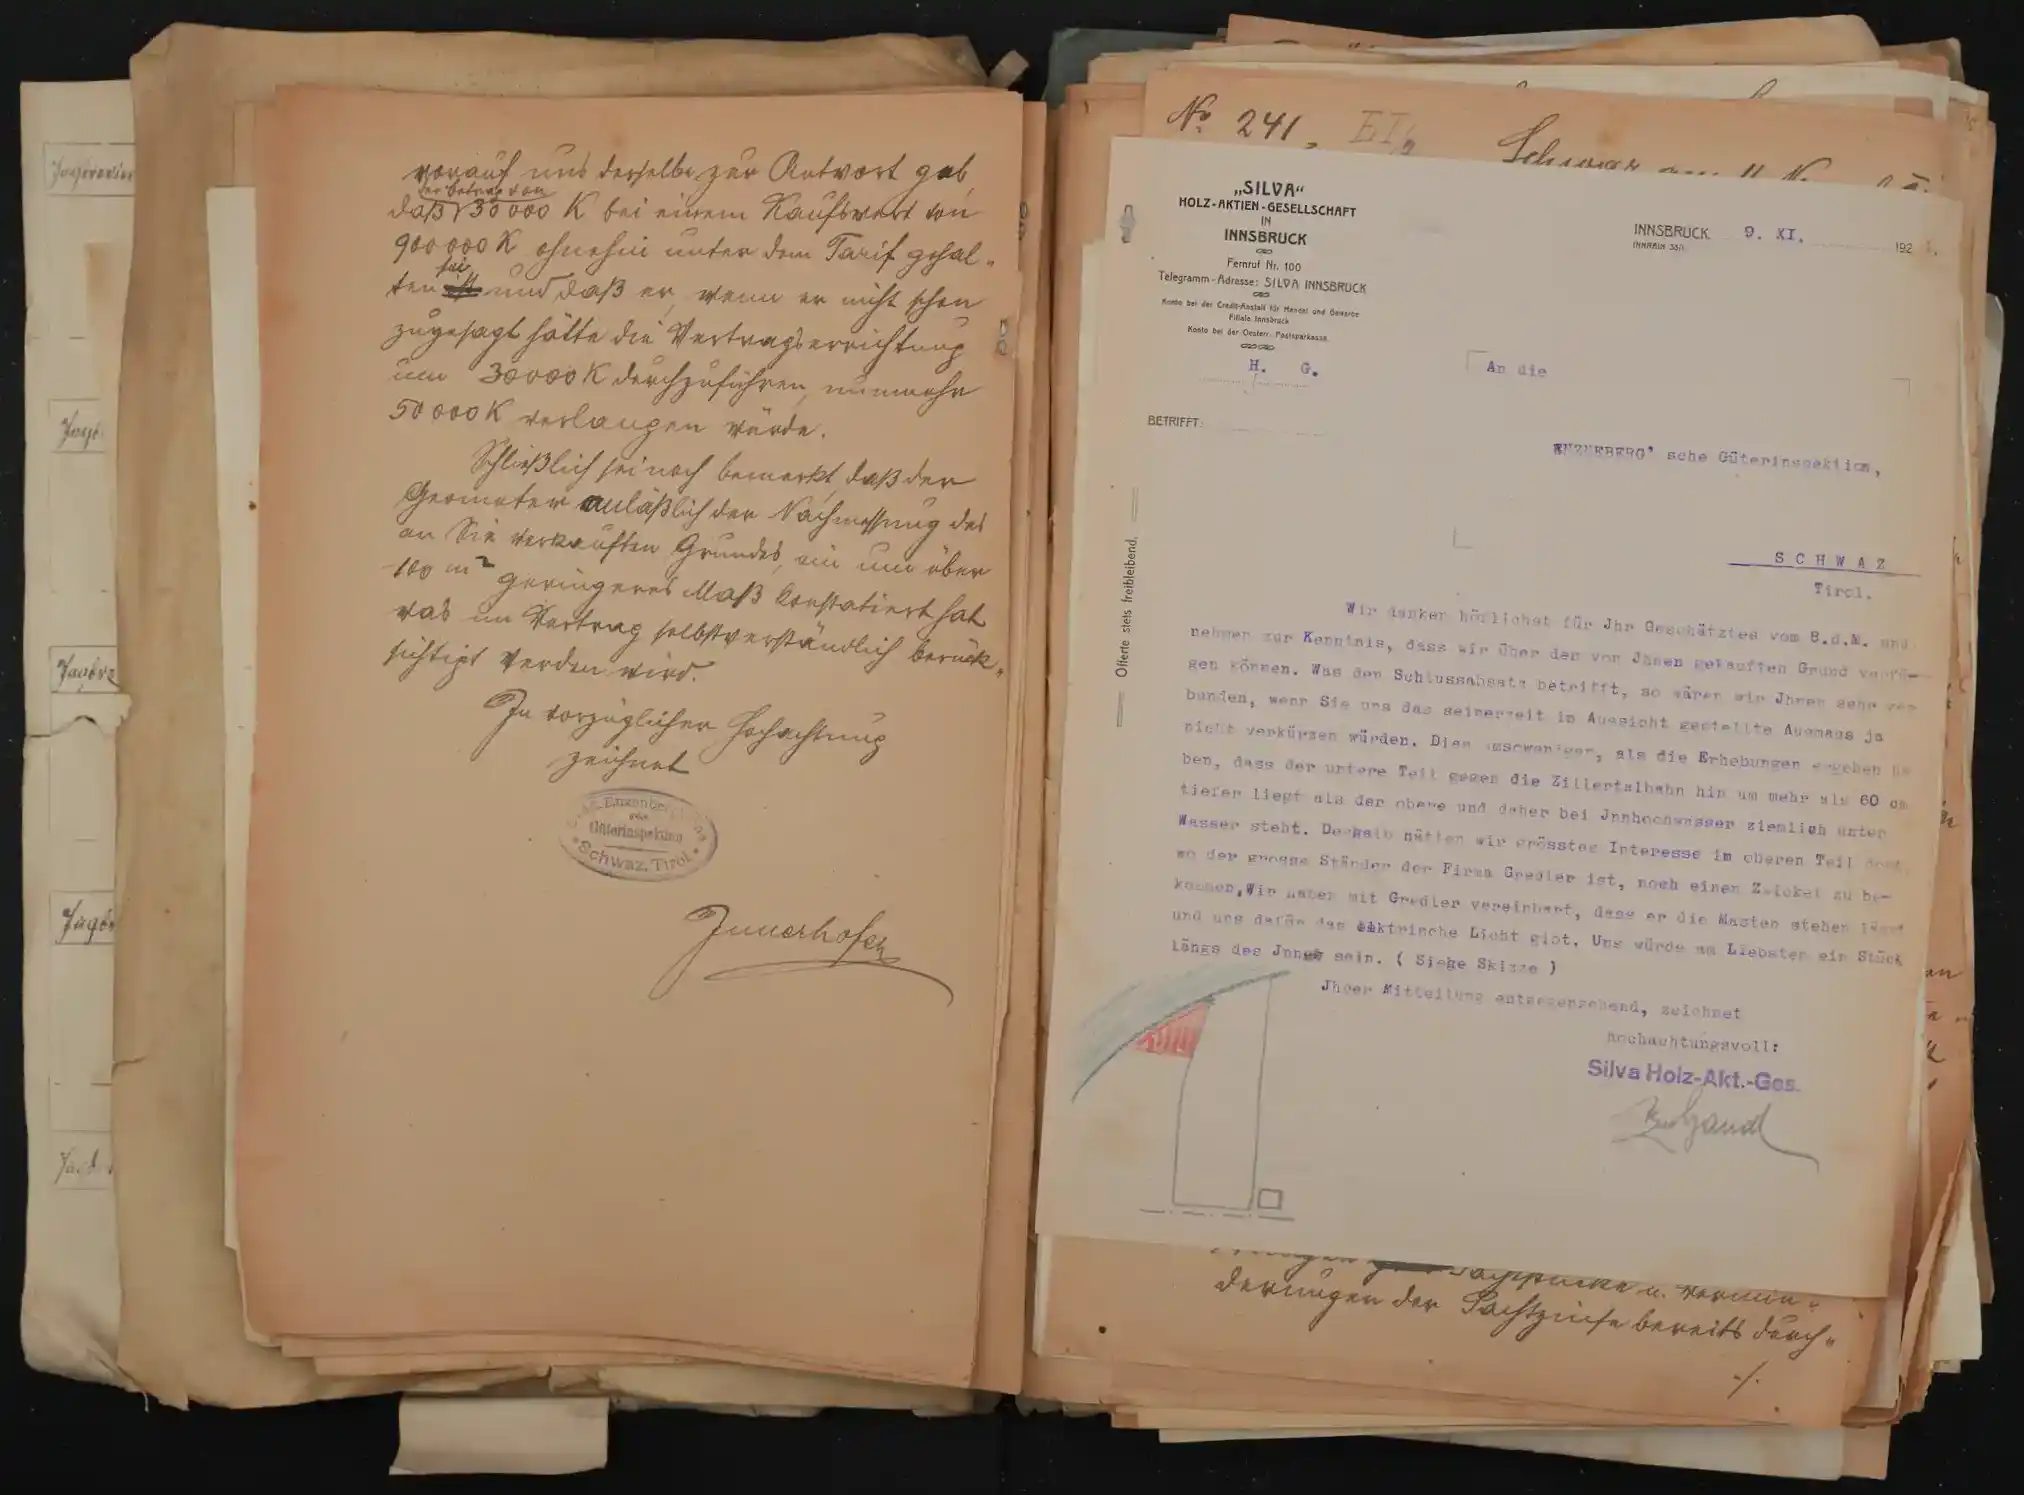 worauf uns derselbe zur Antwort gab,
der Betrag von
daß 30000 K bei einem Kaufswert von
900000 K ohnehin unter dem Tarif gehal-
sei
ten und daß er, wenn er nicht schon
zugesagt hätte die Vertragserrichtung
um 30000 K durchzuführen, nunmehr
50000 K verlangen würde.
Schließlich sei noch bemerkt, daß der
Geometer anläßlich der Nachmessung des
an Sie verkauften Grundes, ein um über
100 m² geringeres Maß konstatiert hat
was im Vertrag selbstverständlich berück-
sichtigt werden wird.
In vorzüglicher Hochachtung
zeichnet
Enzenberg
Güterinspektion
Schwaz, Tirol
Innerhofer
Jagdrevier
No 241
Schwaz am
"SILVA"
HOLZ-AKTIEN-GESELLSCHAFT
IN
INNSBRUCK
Fernruf Nr. 100
Telegramm-Adresse: SILVA INNSBRUCK
Konto bei der Credit-Anstalt für Handel und Gewerbe
Filiale Innsbruck
Konto bei der Oesterr. Postsparkasse.
H. G.
BETRIFFT:
INNSBRUCK 9. XI. 192
INNRAIN
An die
ENZNEBERG' sche Güterinspektion,
SCHWAZ
Tirol.
Offerte stets freibleibend.
Wir danken höflichst für Jhr Geschätztes vom 8.d.M. und
nehmen zur Kenntnis, dass wir über den von Jhnen gekauften Grund verfü-
gen können. Was den Schlussabsatz betrifft, so wären wir Jhnen sehr ver
bunden, wenn Sie uns das seinerzeit in Aussicht gestellte Ausmass ja
nicht verkürzen würden. Dies umsoweniger, als die Erhebungen ergeben ha
ben, dass der untere Teil gegen die Zillertalbahn hin um mehr als 60 cm
tiefer liegt als der obere und daher bei Jnnhochwasser ziemlich unter
Wasser steht. Deshalb hätten wir grösstes Interesse im oberen Teil dort,
wo der grosse Ständer der Firma Gredler ist, noch einen Zwickel zu be-
kommen, Wir haben mit Gredler vereinbart, dass er die Masten stehen lässt
und uns dafür das elektrische Licht gibt. Uns würde am Liebsten ein Stück
längs des Jnnes sein. ( Siehe Skizze )
Jhrer Mitteilung entgegensehend, zeichnet
hochachtungsvoll:
Silva Holz-Akt.-Ges.
derungen der Pachtzinse bereits durch-
./.